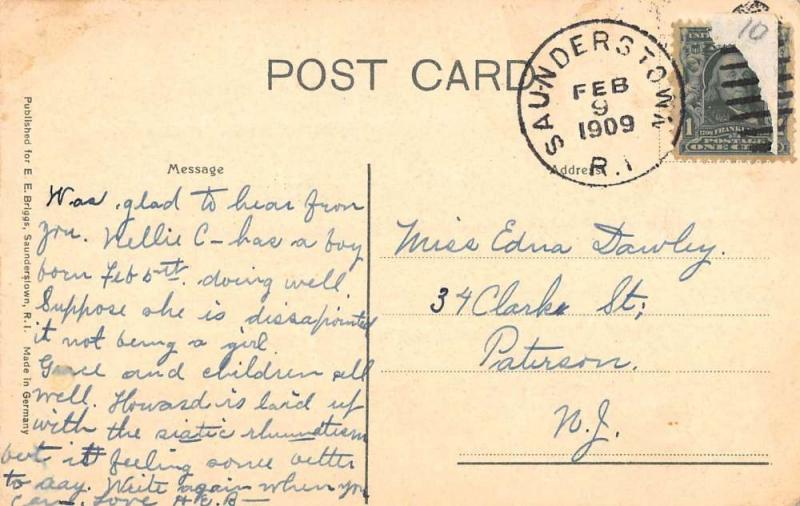 POST CARD
SAUNDERSTOWN
FEB
9
1909
R.I
10
1
1706 FRANKLIN
POSTAGE
ONE CENT
Published for E. E. Briggs, Saunderstown, R. I. Made in Germany
Message
Was glad to hear from
you. Nellie C- has a boy
born Feb 5th. doing well
Suppose she is dissapointed
it not being a girl
Grace and children all
well. Howard is laid up
with the siatic rhumatism
but is feeling some better
to day. Write again when you
can. Love H.C.B-
Address
Miss Edna Dawley.
34 Clark St;
Paterson.
N.J.